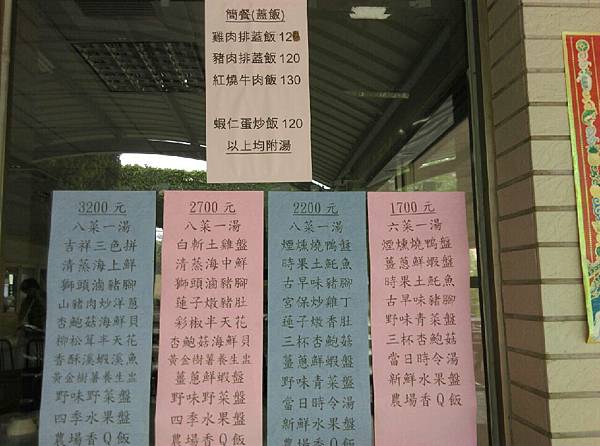 簡餐(蓋飯)
雞肉排蓋飯 120
豬肉排蓋飯 120
紅燒牛肉飯 130
蝦仁蛋炒飯 120
以上均附湯
3200 元
八菜一湯
吉祥三色拼
清蒸海上鮮
獅頭滷豬腳
山豬肉炒洋蔥
杏鮑菇海鮮貝
柳松茸半天花
香酥溪蝦溪魚
黃金樹薯養生盅
野味野菜盤
四季水果盤
農場香Q飯
2700 元
八菜一湯
白斬土雞盤
清蒸海中鮮
獅頭滷豬腳
蓮子燉豬肚
彩椒半天花
杏鮑菇海鮮貝
黃金樹薯養生盅
薑蔥鮮蝦盤
野味野菜盤
四季水果盤
農場香Q飯
2200 元
八菜一湯
煙燻燒鴨盤
時果土魠魚
古早味豬腳
宮保炒雞丁
蓮子燉香肚
三杯杏鮑菇
薑蔥鮮蝦盤
野味青菜盤
當日時令湯
新鮮水果盤
農場香Q飯
1700 元
六菜一湯
煙燻燒鴨盤
薑蔥鮮蝦盤
時果土魠魚
古早味豬腳
野味青菜盤
三杯杏鮑菇
當日時令湯
新鮮水果盤
農場香Q飯